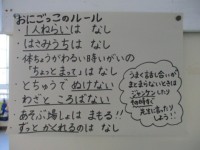 おにごっこのルール
・1人ねらいは なし
・はさみうちは なし
・体ちょうがわるい時がいの
「ちょっとまって」は なし
・とちゅうで ぬけない
・わざと ころばない
・あそぶ場しょは まもる!!
・ずっと かくれるのは なし
うまく話し合いが
まとまらないときは
ジャンケンしたり
先生に言ったり
しよう!!